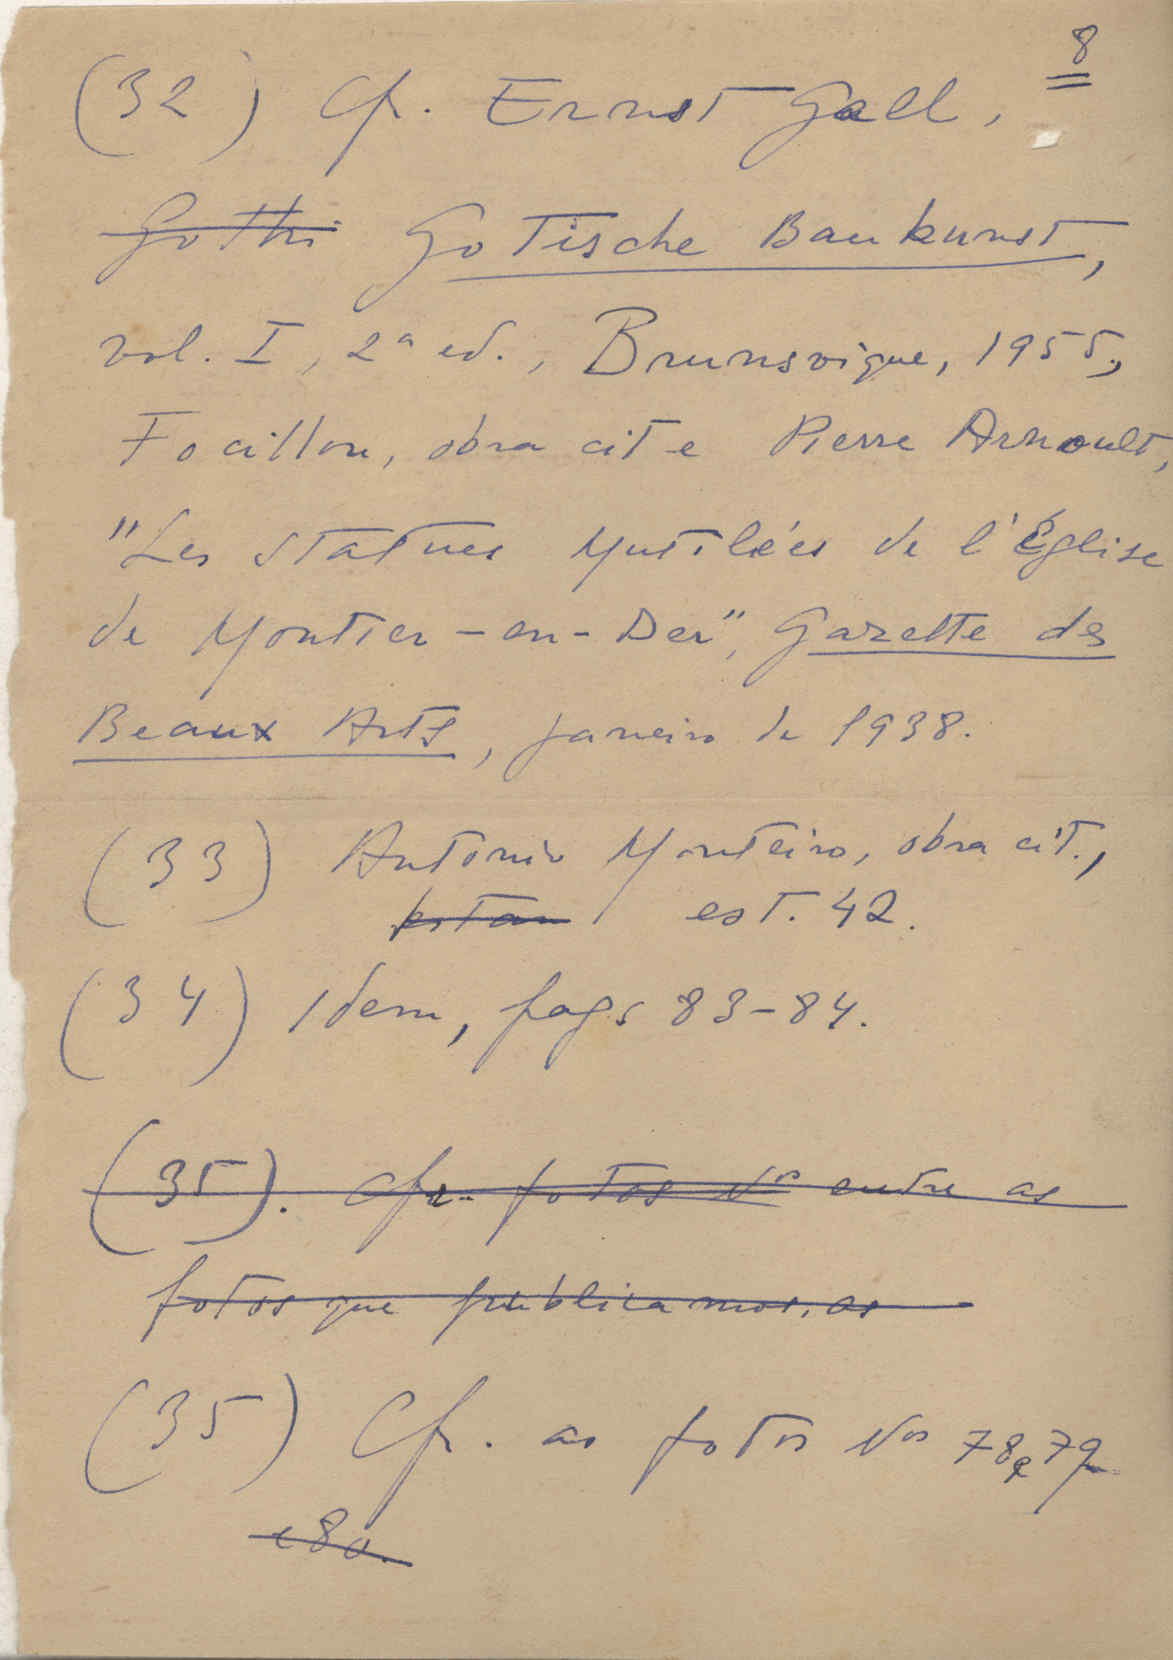 8
(32) Cfr. Ernst Gall,
Gothi Gotische Baukunst,
vol. I, 2ª ed., Brunsvique, 1955,
Focillon, obra cit e Pierre Arnoult,
"Les Statues Mutilées de l'Église
de Montier-en-Der", Gazette des
Beaux Arts, janeiro de 1938.
(33) Antonio Monteiro, obra cit.,
estam est. 42.
(34) Idem, pags 83-84.
(35). Cfr. fotos Nos entre as
fotos que publicamos, as
(35) Cfr. as fotos Nos 78 e 79
e 80.